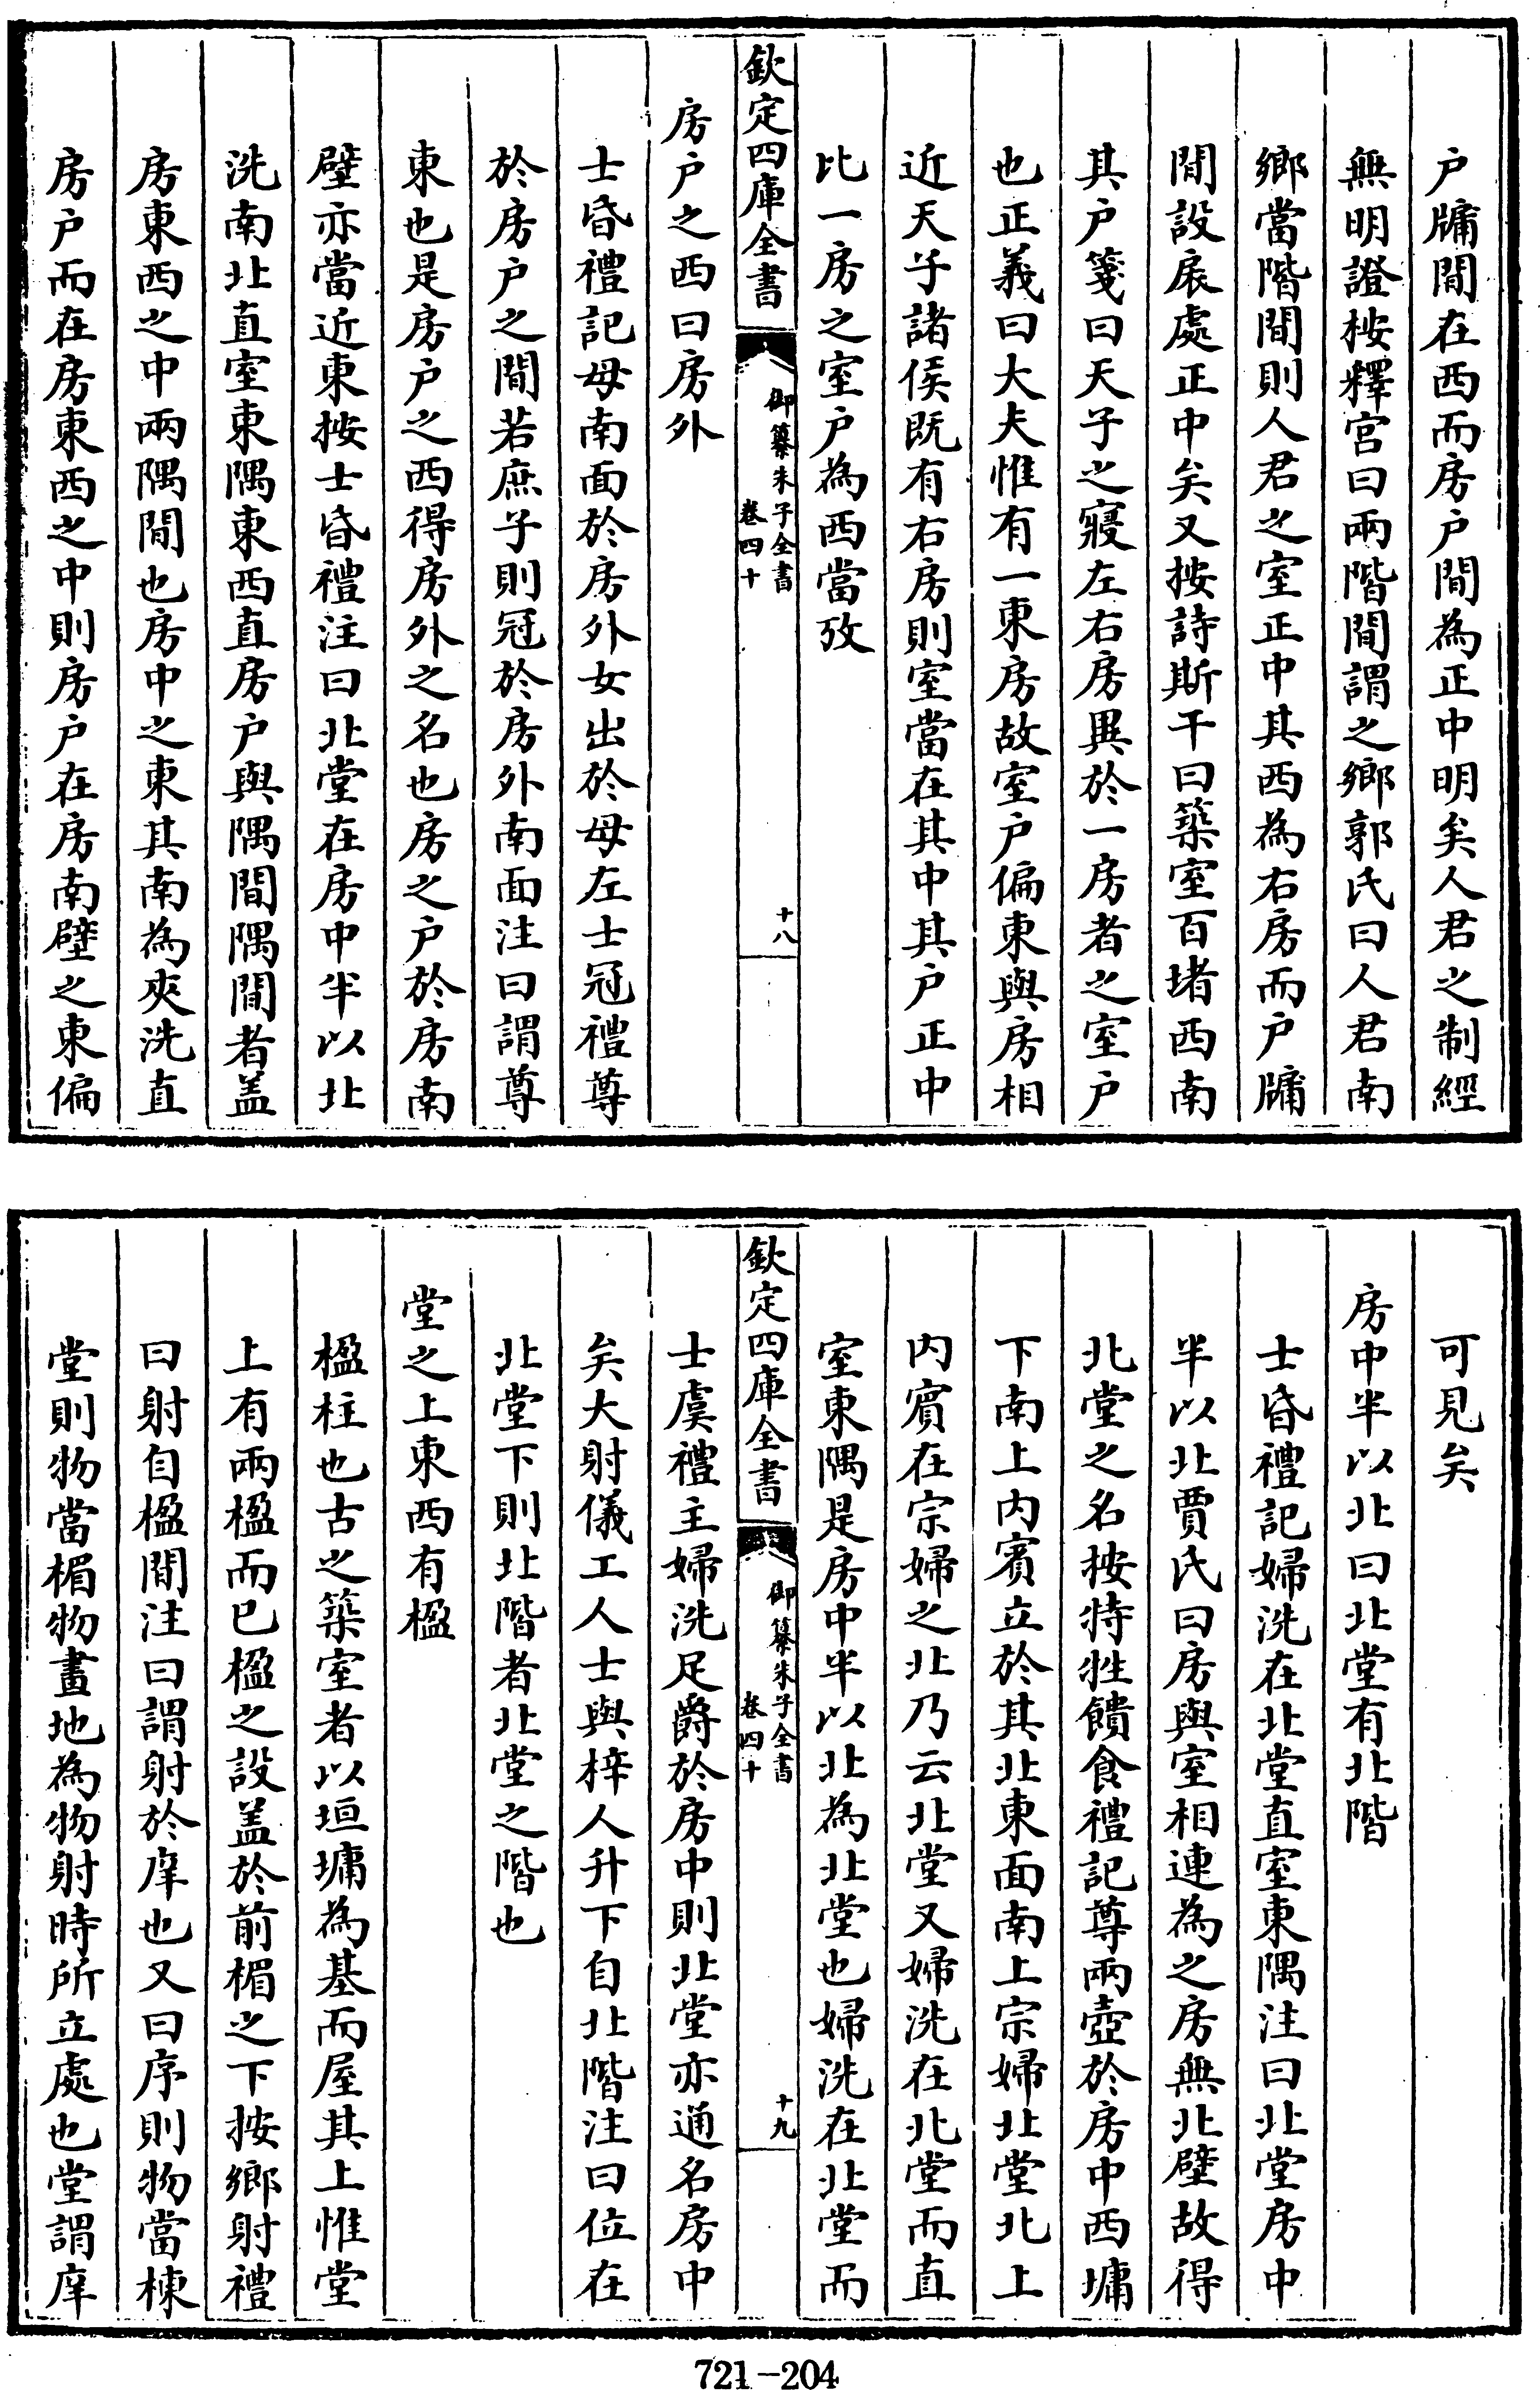 戶牖間在西而房戶間為正中明矣人君之制經
無明證按釋宮曰兩階間謂之鄉郭氏曰人君南
鄉當階間則人君之室正中其西為右房而戶牖
間設扆處正中矣又按詩斯干曰築室百堵西南
其戶箋曰天子之寢左右房異於一房者之室戶
也正義曰大夫惟有一東房故室戶偏東與房相
近天子諸侯既有右房則室當在其中其戶正中
比一房之室戶為西當攷
欽定四庫全書
御纂朱子全書
卷四十
十八
房戶之西曰房外
士昏禮記母南面於房外女出於母左士冠禮尊
於房戶之間若庶子則冠於房外南面注曰謂尊
東也是房戶之西得房外之名也房之戶於房南
壁亦當近東按士昏禮注曰北堂在房中半以北
洗南北直室東隅東西直房戶與隅間隅間者盖
房東西之中兩隅間也房中之東其南為夾洗直
房戶而在房東西之中則房戶在房南壁之東偏
可見矣
房中半以北曰北堂有北階
士昏禮記婦洗在北堂直室東隅注曰北堂房中
半以北賈氏曰房與室相連為之房無北壁故得
北堂之名按特牲饋食禮記尊兩壺於房中西墉
下南上內賓立於其北東面南上宗婦北堂北上
內賓在宗婦之北乃云北堂又婦洗在北堂而直
室東隅是房中半以北為北堂也婦洗在北堂而
欽定四庫全書
御纂朱子全書
卷四十
十九
士虞禮主婦洗足爵於房中則北堂亦通名房中
矣大射儀工人士與梓人升下自北階注曰位在
北堂下則北階者北堂之階也
堂之上東西有楹
楹柱也古之築室者以垣墉為基而屋其上惟堂
上有兩楹而已楹之設盖於前楣之下按鄉射禮
曰射自楹間注曰謂射於庠也又曰序則物當棟
堂則物當楣物畫地為物射時所立處也堂謂庠
721-204